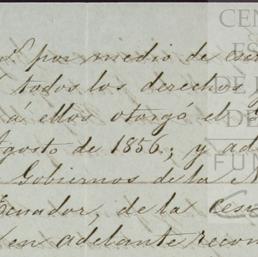 por medio de
todos los derechos
á ellos otorgó el
Agosto de 1856; y ad
Gobiernos de la N
Ecuador, de la cesi
en adelante recon
CEN
ES
DE
DE
FUN